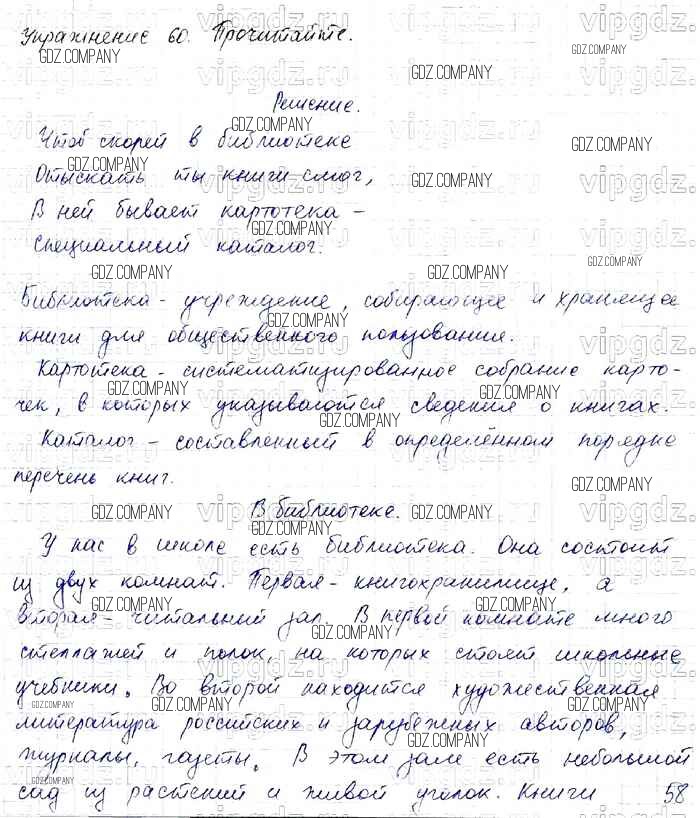 Упражнение 60. Прочитайте.
Решение.
Чтоб скорей в библиотеке
Отыскать ты книги смог,
В ней бывает картотека –
специальный каталог.
Библиотека – учреждение, собирающее и хранящее
книги для общественного пользования.
Картотека – систематизированное собрание карто-
чек, в которых указываются сведения о книгах.
Каталог – составленный в определённом порядке
перечень книг.
В библиотеке.
У нас в школе есть библиотека. Она состоит
из двух комнат. Первая – книгохранилище, а
вторая – читальный зал. В первой комнате много
стеллажей и полок, на которых стоят школьные
учебники. Во второй находится художественная
литература российских и зарубежных авторов,
журналы, газеты. В этом зале есть небольшой
сад из растений и живой уголок. Книги 58